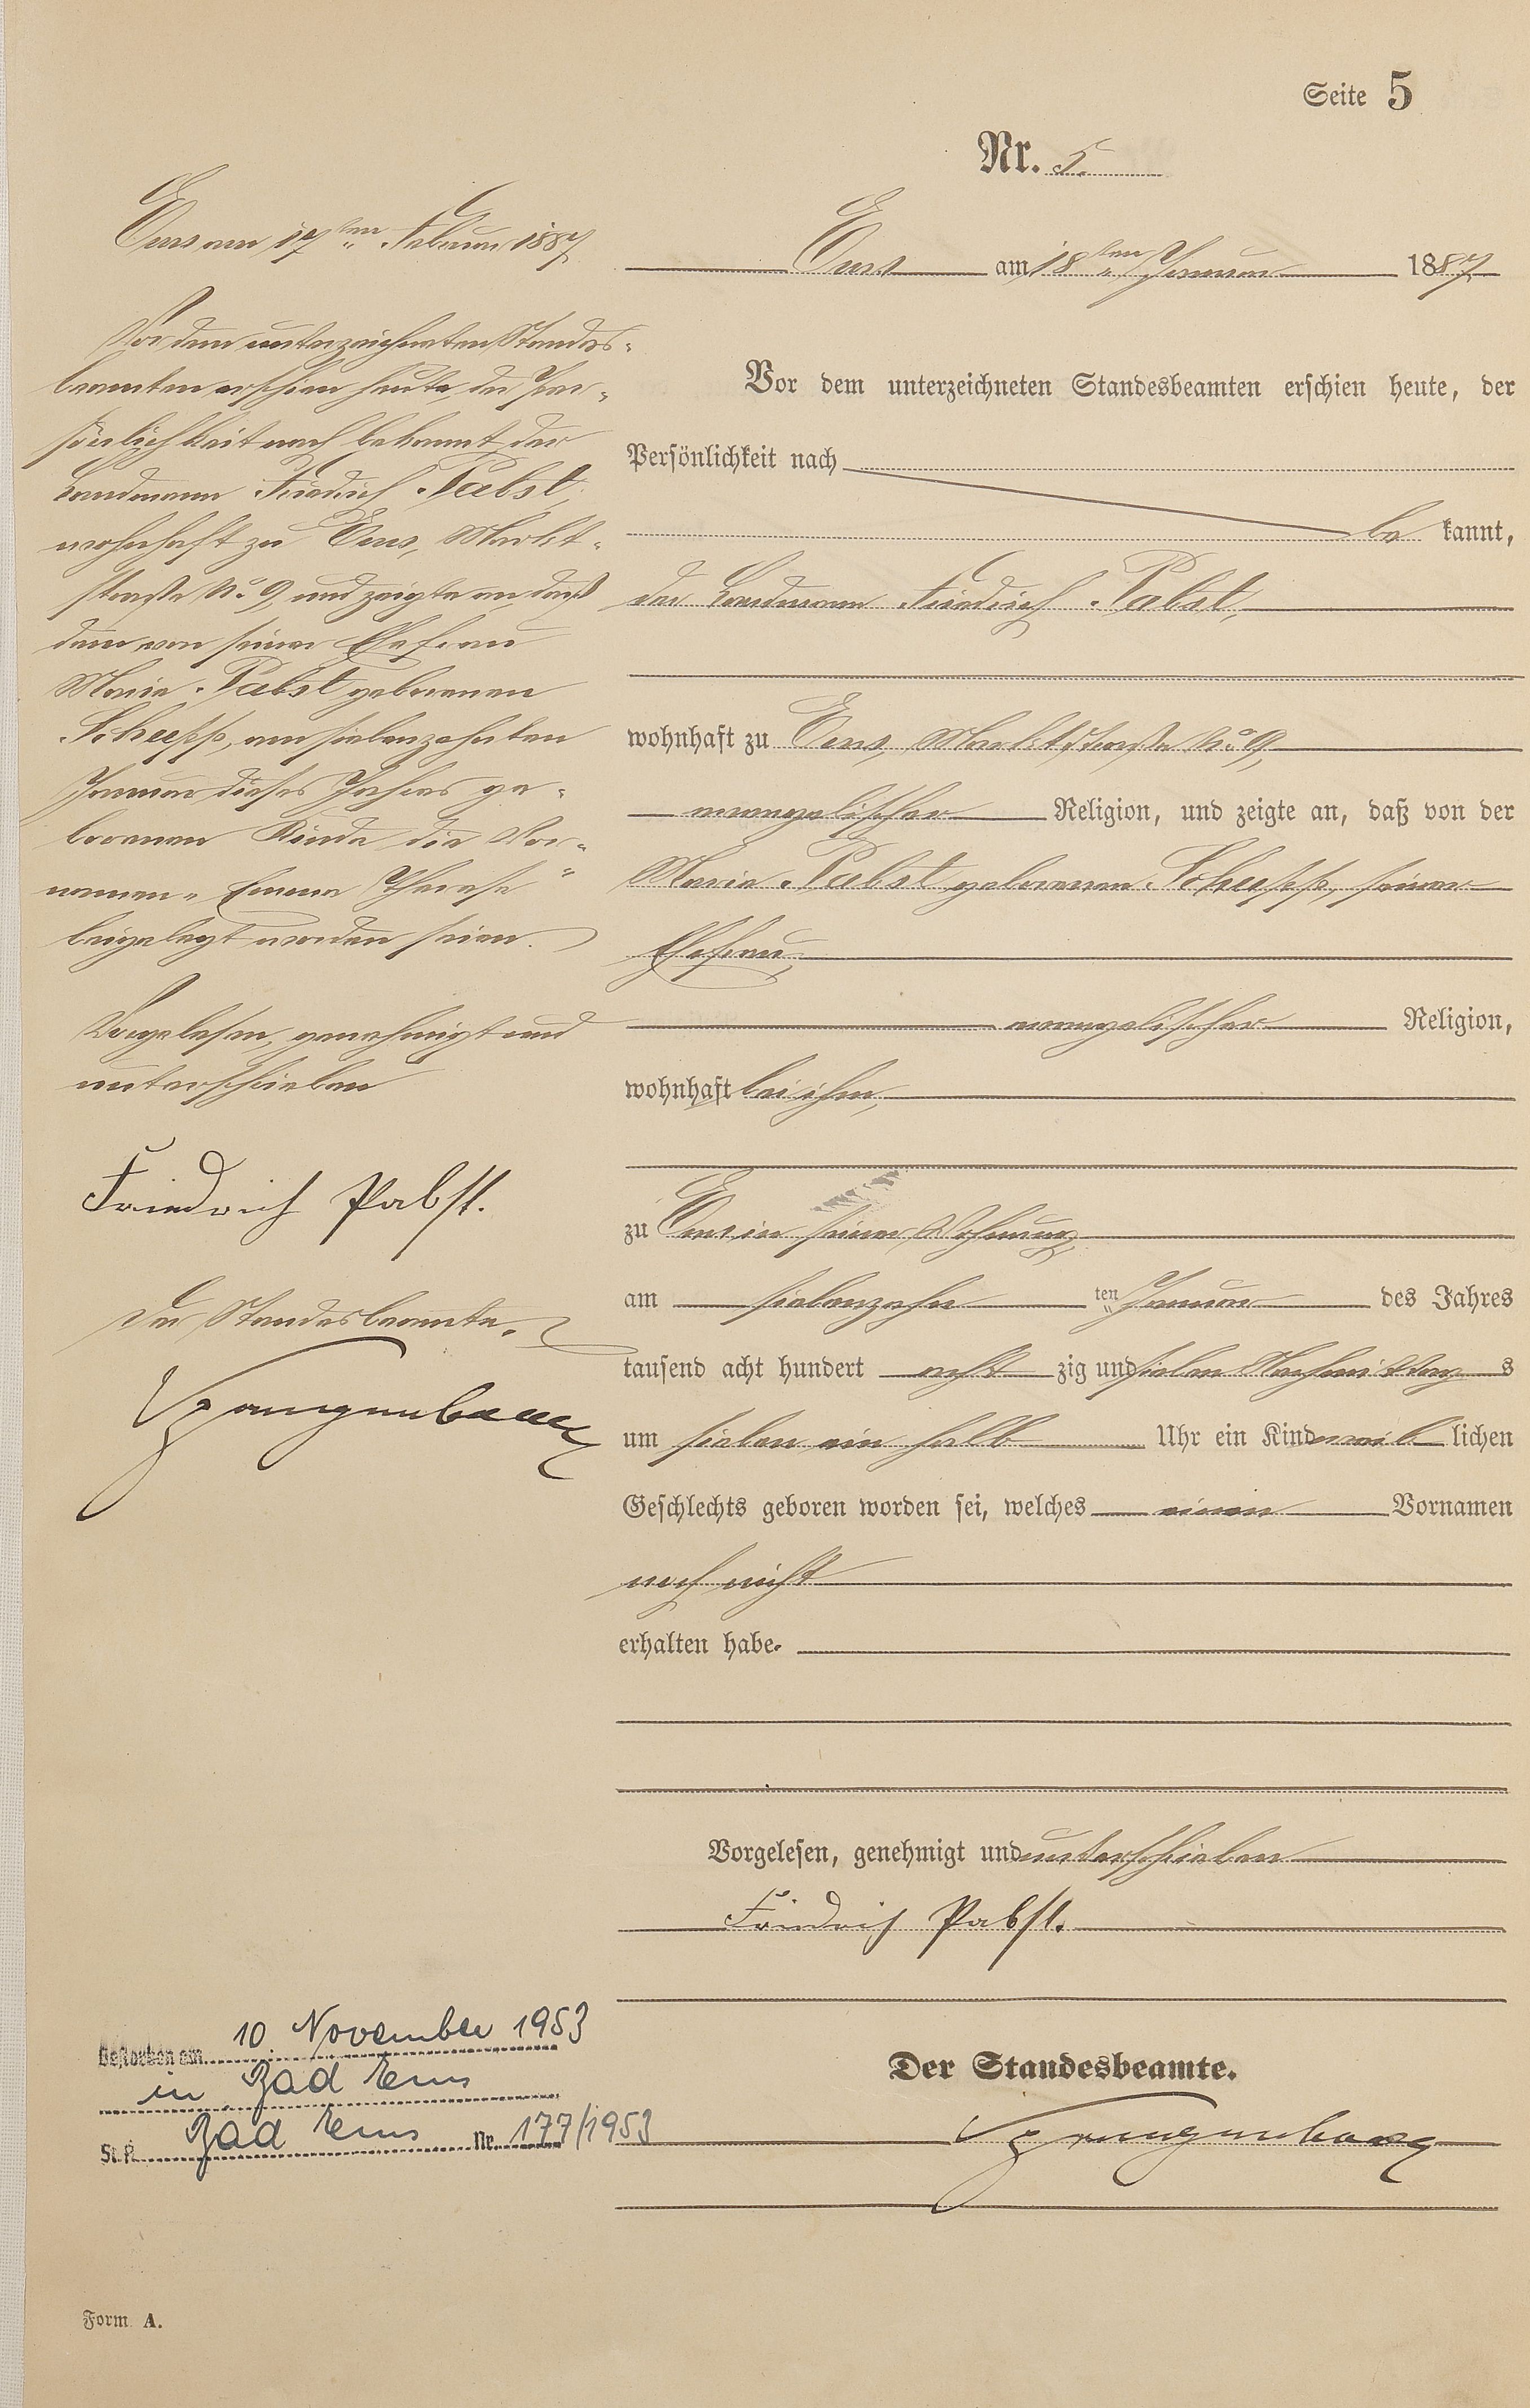 Seite 5
Nr. 5.
Ems am 18ten Januar 1887
Vor dem unterzeichneten Standesbeamten erschien heute, der
Persönlichkeit nach
be kannt,
der Landmann Friedrich Pabst,
wohnhaft zu Ems, Marktstraße No 9,
evangelischer Religion, und zeigte an, daß von der
Marie Pabst geborenen Schupp, seiner
Ehefrau,
evangelischer Religion,
wohnhaft bei ihm,
zu Ems in seiner Wohnung,
am siebenzehn ten Januar des Jahres
tausend acht hundert acht zig und sieben Nachmittag s
um sieben ein halb Uhr ein Kind weib lichen
Geschlechts geboren worden sei, welches einen Vornamen
noch nicht
erhalten habe.
Vorgelesen, genehmigt und unterschrieben
Friedrich Pabst.
Der Standesbeamte.
Ems am 17ten Februar 1887
Vor dem unterzeichneten Standes-
beamten erschien heute, der Per-
sönlichkeit nach bekannt, der
Landmann Friedrich Pabst,
wohnhaft zu Ems, Markt-
straße No 9, und zeigte an, daß
dem von seiner Ehefrau
Marie Pabst geborenen
Schupp, am siebenzehnten
Januar dieses Jahres ge-
borenen Kinde die Vor-
namen „Emma Therese“
beigelegt worden seien.
Vorgelesen, genehmigt und
unterschrieben
Friedrich Pabst.
Der Standesbeamte.
Gestorben am 10. November 1953
in Bad Ems
St. A. Bad Ems Nr. 177/1953
Form A.